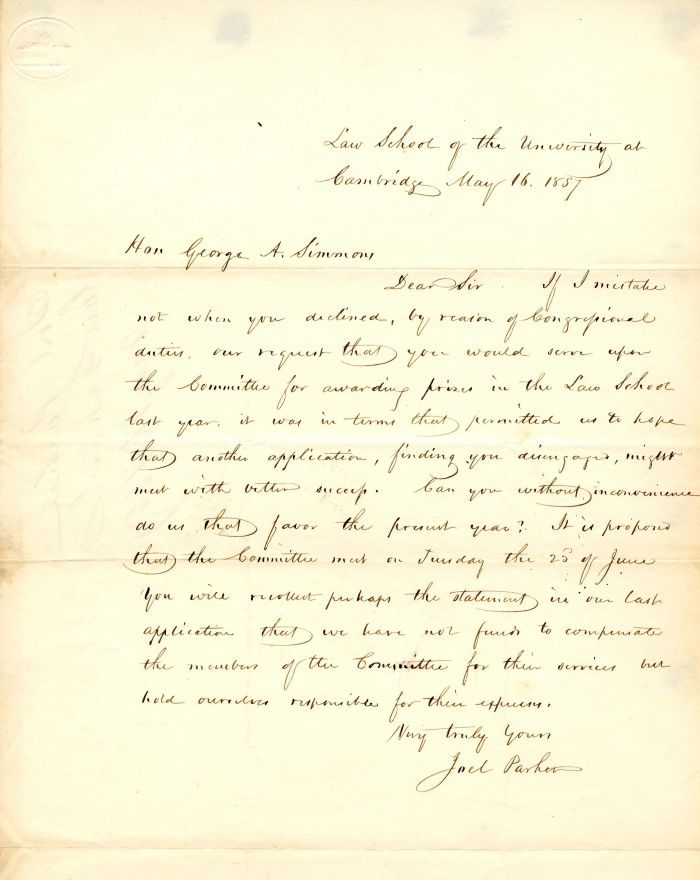 Law School of the University at
Cambridge May 16. 1857
Hon George A. Simmons
Dear Sir. If I mistake
not when you declined, by reason of Congressional
duties, our request that you would serve upon
the Committee for awarding prizes in the Law School
last year, it was in terms that permitted us to hope
that another application, finding you disengaged, might
meet with better success. Can you without inconvenience
do us that favor the present year? It is proposed
that the Committee meet on Tuesday the 23 of June
You will recollect perhaps the statement in our last
application that we have not funds to compensate
the members of the Committee for their services but
hold ourselves responsible for their expenses.
Very truly Yours
Joel Parker